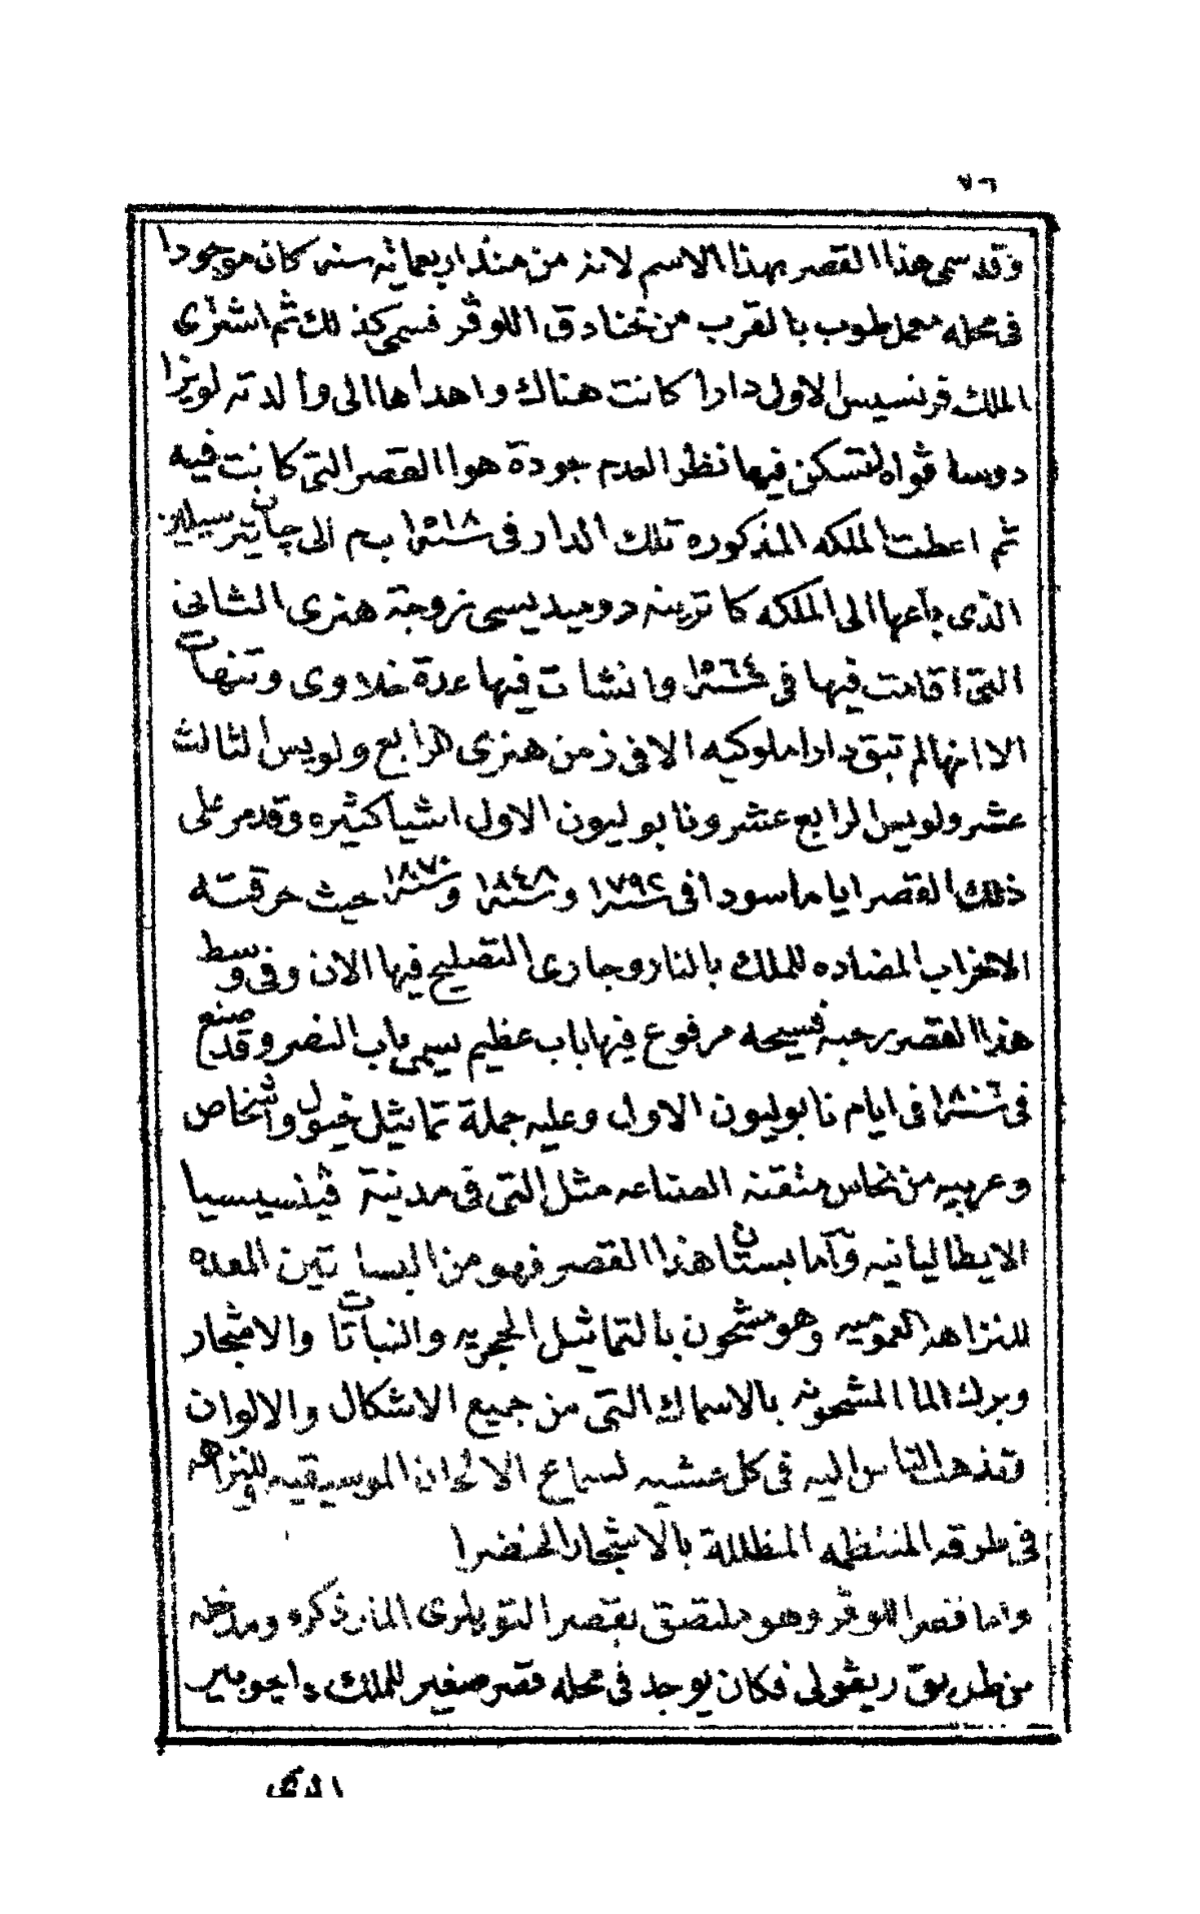 ٧٦
وقد سمى هذا القصر بهذا الاسم لانه من منذ اربعمائه سنه كان موجودا
فى محله معمل طوب بالقرب من خنادق اللوڤر فسمى كذلك ثم اشترى
الملك فرنسيس الاولى دارا كانت هناك واهداها الى والدته لويزا
دوسا ڤواه لتسكن فيها نظرا لعدم جودة هوا القصر التى كانت فيه
ثم اعطت الملكه المذكوره تلك الدار فى سنة ١٥١٨ ب م الى چان
الذى باعها الى الملكه كاترينه دوميديسى زوجة هنرى الثانى
التى اقامت فيها فى سنة ١٥٦٤ وانشات فيها عدة خلاوى وتنزهات
الا انها لم تبق دارا ملوكيه الا فى زمن هنرى الرابع ولويس الثالث
عشر ولويس الرابع عشر ونابوليون الاول اشيا كثيره وقد مر على
ذلك القصر ايا ما سودا فى سنة ١٧٩٢ وسنة ١٨٤٨ وسنة ١٨٧٠ حيث حرقته
الاحزاب المضاده للملك بالنار وجارى التصليح فيها الان وفى وسط
هذا القصر رحبه فسيحه مرفوع فيها باب عظيم يسمى باب النصر وقد صنع
فى سنة ١٨٠٦ فى ايام نابوليون الاول وعليه جملة تماثيل خيول واشخاص
وعربيه من نحاس متقنه الصناعه مثل التى فى مدينة ڤينسيسيا
الايطاليانيه وآما بستان هذا القصر فهو من البساتين المعده
للنزاهه العموميه وهو مشحون بالتماثيل الحجريه والنباتات والاشجار
وبرك الما المشحونه بالاسماك التى من جميع الاشكال والالوان
وتذهب الناس اليه فى كل عشيه لسماع الالحان الموسيقيه وللنزاهه
فى طرقه المنتظمه المظللة بالاشجار الخضرا
واما قصر اللوڤر وهو ملتصق بقصر التويلرى المار ذكره ومدخله
من طريق ريڤولى فكان يوجد فى محله قصر صغير للملك